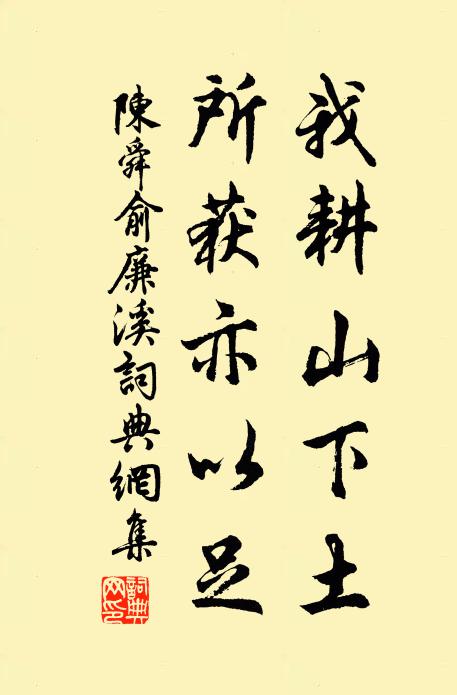 我耕山下土
所获亦以足
陳舜俞廉溪詞典網集
詞典网印